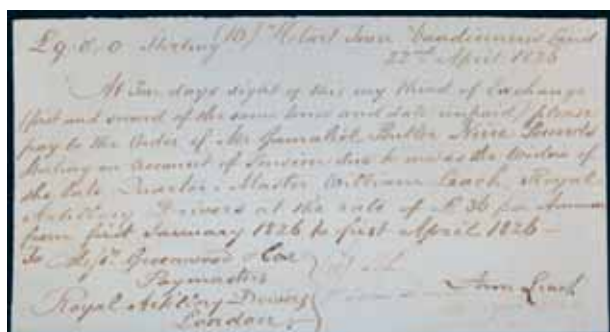 £9. 0. 0 Sterling (10) Hobart Town Vandiemens Land
22nd April 1826
At Ten days sight of this my third of Exchange
(first and second of the same tenor and date unpaid) please
pay to the Order of Mr Gamaliel Butler Nine Pounds
Sterling on account of Pension due to me as the Widow of
the late Quarter Master William Leach Royal
Artillery Drivers at the rate of £36 per Annum
from first January 1826 to first April 1826 —
To Messrs Greenwood & Cox
Paymasters
Royal Artillery Drivers
London
Ann Leach